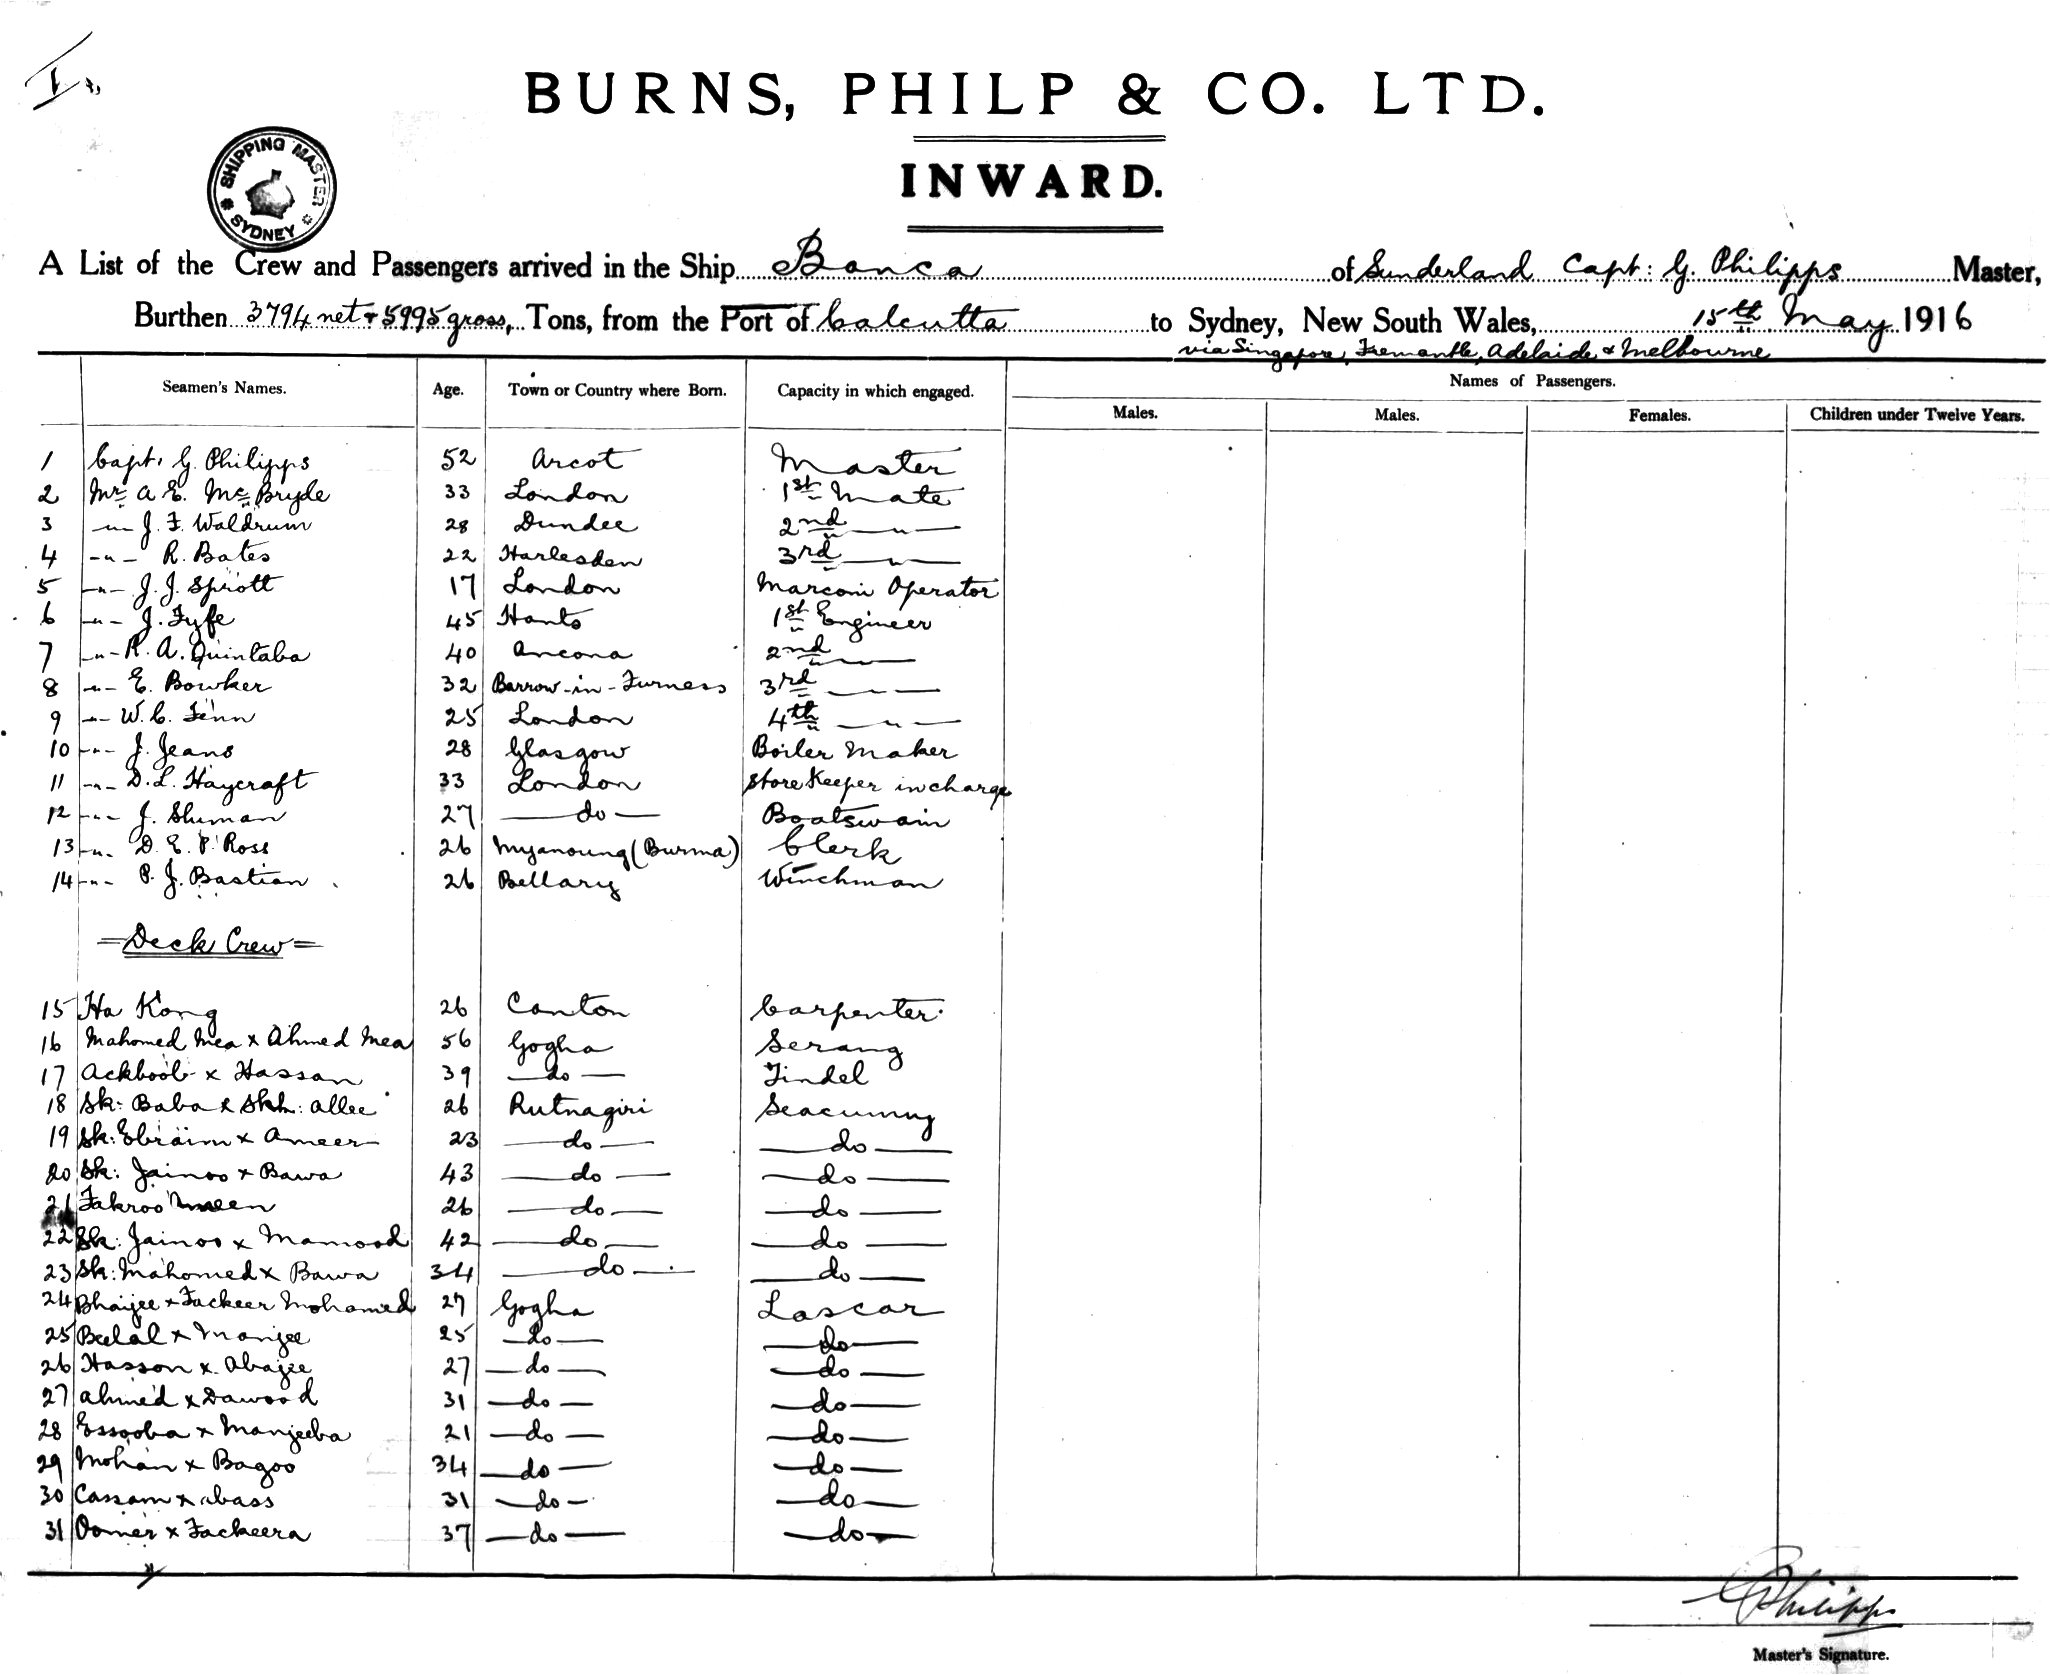 I.
BURNS, PHILP & CO. LTD.
INWARD.
SHIPPING MASTER
SYDNEY
A List of the Crew and Passengers arrived in the Ship Banca of Sunderland Capt: G. Philipps Master,
Burthen 3794 net & 5995 gross, Tons, from the Port of Calcutta to Sydney, New South Wales, 15th May 1916
via Singapore, Fremantle, Adelaide & Melbourne
Seamen's Names. Age. Town or Country where Born. Capacity in which engaged. Names of Passengers.
Males. Males. Females. Children under Twelve Years.
1 Capt. G. Philipps 52 Arcot Master
2 Mr A E. McBryde 33 London 1st Mate
3 —"— J. F. Waldrum 28 Dundee 2nd —"—
4 —"— R. Bates 22 Harlesden 3rd —"—
5 —"— J. J. Sprott 17 London Marconi Operator
6 —"— J. Fyfe 45 Hants 1st Engineer
7 —"— R. A. Quintaba 40 Ancona 2nd —"—
8 —"— E. Bowker 32 Barrow-in-Furness 3rd —"—
9 —"— W. C. Fenn 25 London 4th —"—
10 —"— J. Jeans 28 Glasgow Boiler Maker
11 —"— D. L. Haycraft 33 London Store Keeper in charge
12 —"— J. Shuman 27 —do— Boatswain
13 —"— D. E. P. Ross 26 Myanoung (Burma) Clerk
14 —"— P. J. Bastian 26 Bellary Winchman
=Deck Crew=
15 Ha Kong 26 Canton Carpenter.
16 Mahomed Mea x Ahmed Mea 56 Gogha Serang
17 Ackboob x Hassan 39 —do— Tindel
18 Sk: Baba x Skh: Allee 26 Rutnagiri Seacunny
19 Sk: Ebraim x Ameer 23 —do— —do—
20 Sk: Jainoo x Bawa 43 —do— —do—
21 Fakroo 26 —do— —do—
22 Sk: Jainoo x Mamood 42 —do— —do—
23 Sk: Mahomed x Bawa 34 —do— —do—
24 Bhaijee x Fackeer Mohamed 27 Gogha Lascar
25 Belal x Manjee 25 —do— —do—
26 Hasson x Abajee 27 —do— —do—
27 Ahmed x Dawood 31 —do— —do—
28 Essooba x Manjeeba 21 —do— —do—
29 Mohan x Bagoo 34 —do— —do—
30 Cassam x Abass 31 —do— —do—
31 Oomer x Fackeera 37 —do— —do—
G Philipps
Master's Signature.